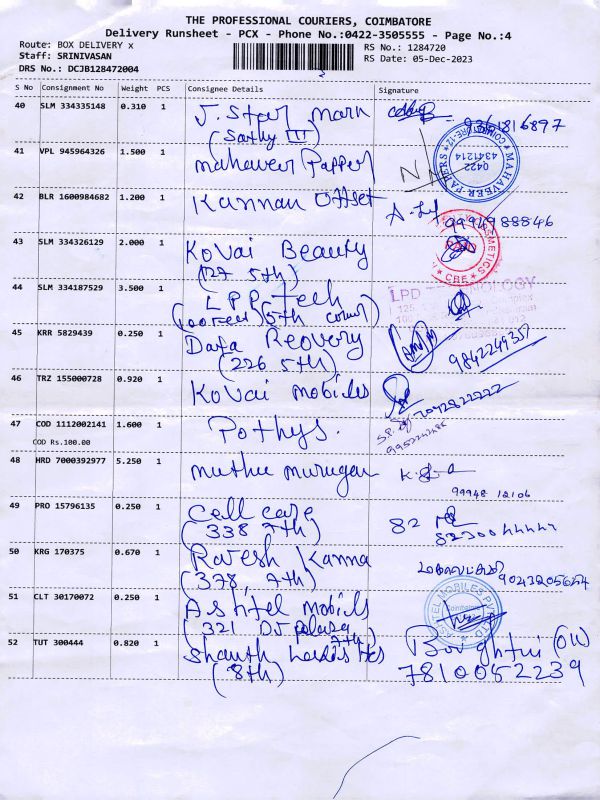 THE PROFESSIONAL COURIERS, COIMBATORE
Delivery Runsheet - PCX - Phone No.:0422-3505555 - Page No.:4
Route: BOX DELIVERY x RS No.: 1284720
Staff: SRINIVASAN RS Date: 05-Dec-2023
DRS No.: DCJB128472004
S No Consignment No Weight PCS Consignee Details Signature
40 SLM 334335148 0.310 1 J. Star mark
(Sathy III)
41 VPL 945964326 1.500 1 mahaveer Papper
MAHAVEER PAPERS COIMBATORE-12
0422
4341214
42 BLR 1600984682 1.200 1 Kannan offset
9994988846
43 SLM 334326129 2.000 1 Kovai Beauty
(127 5th)
COSMETICS
CBE
44 SLM 334187529 3.500 1 LPP tech
(100 Feet) (5th corner)
LPD
45 KRR 5829439 0.250 1 Data Recovery
(226 5th)
9842249357
46 TRZ 155000728 0.920 1 Kovai mobiles
47 COD 1112002141 1.600 1 Pothys.
COD Rs.100.00
48 HRD 7000392977 5.250 1 muthu murugan
99948 12106
49 PRO 15796135 0.250 1 Cell care
(338 7th)
82
50 KRG 170375 0.670 1 Ravesh Kanna
(378, 7th)
51 CLT 30170072 0.250 1 Ashtel mobils
(321 DJ plaza
7th)
ASHTEL MOBILES PVT LTD
Coimbatore
52 TUT 300444 0.820 1 Shanth Ladis tes
(8th)
7810052239